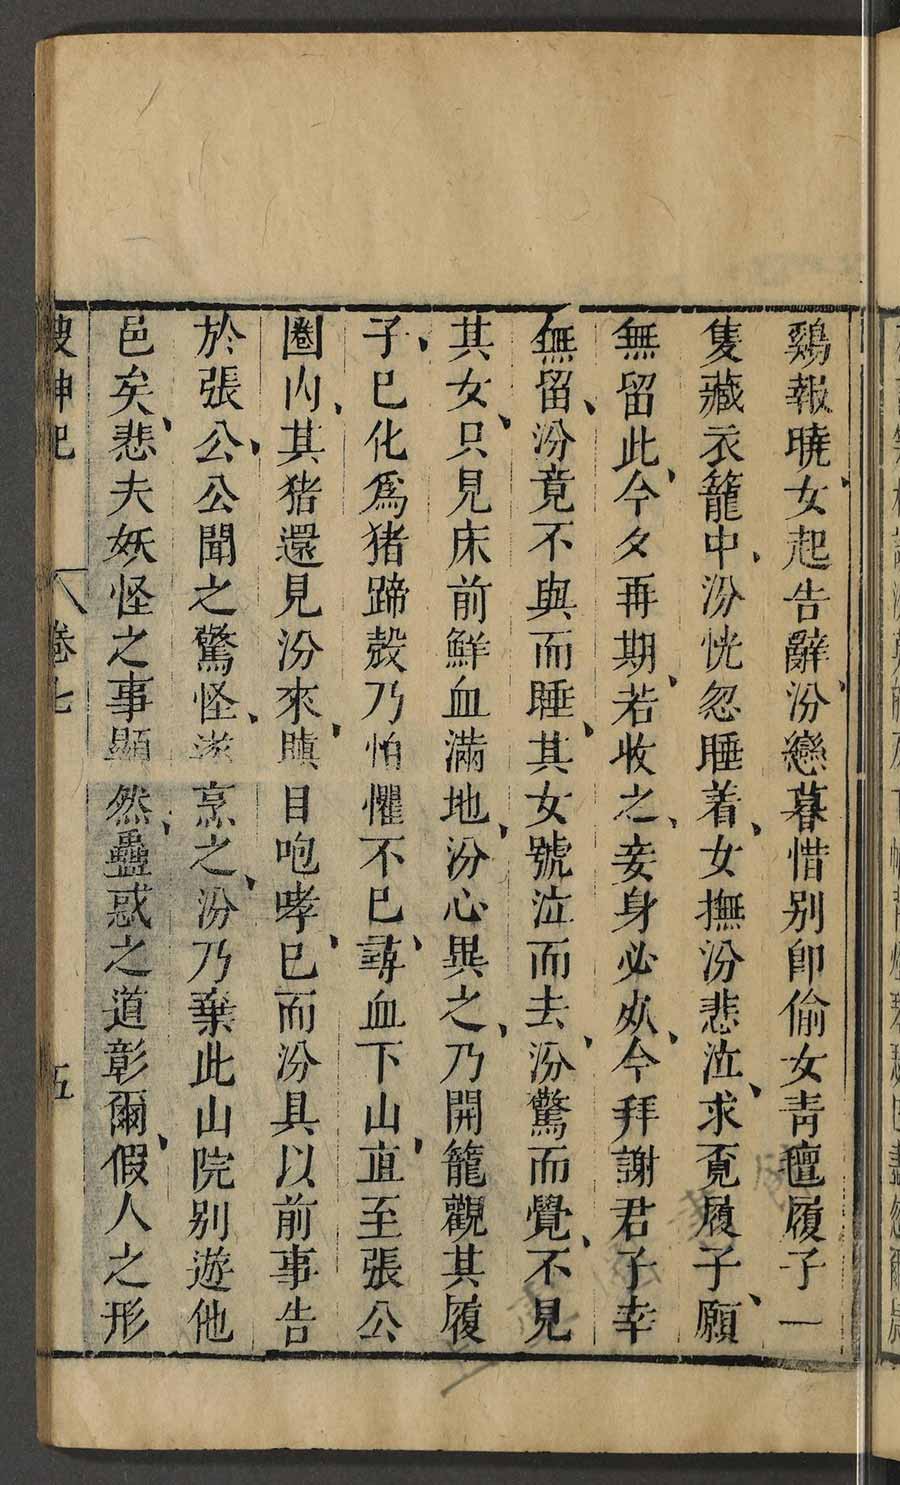 鷄報曉女起告辭汾戀暮惜別卽偷女靑氊履子一
隻藏衣籠中汾恍忽睡着女撫汾悲泣求覓履子願
無留此今夕再期若收之妾身必𣦸今拜謝君子幸
無留汾竟不與而睡其女號泣而去汾驚而覺不見
其女只見床前鮮血滿地汾心異之乃開籠觀其履
子已化爲猪蹄殼乃怕懼不已尋血下山直至張公
圈内其猪還見汾來瞋目咆哮已而汾具以前事告
於張公公聞之驚怪遂烹之汾乃棄此山院別遊他
邑矣悲夫妖怪之事顯然蠱惑之道彰爾假人之形
搜神記 卷七 五